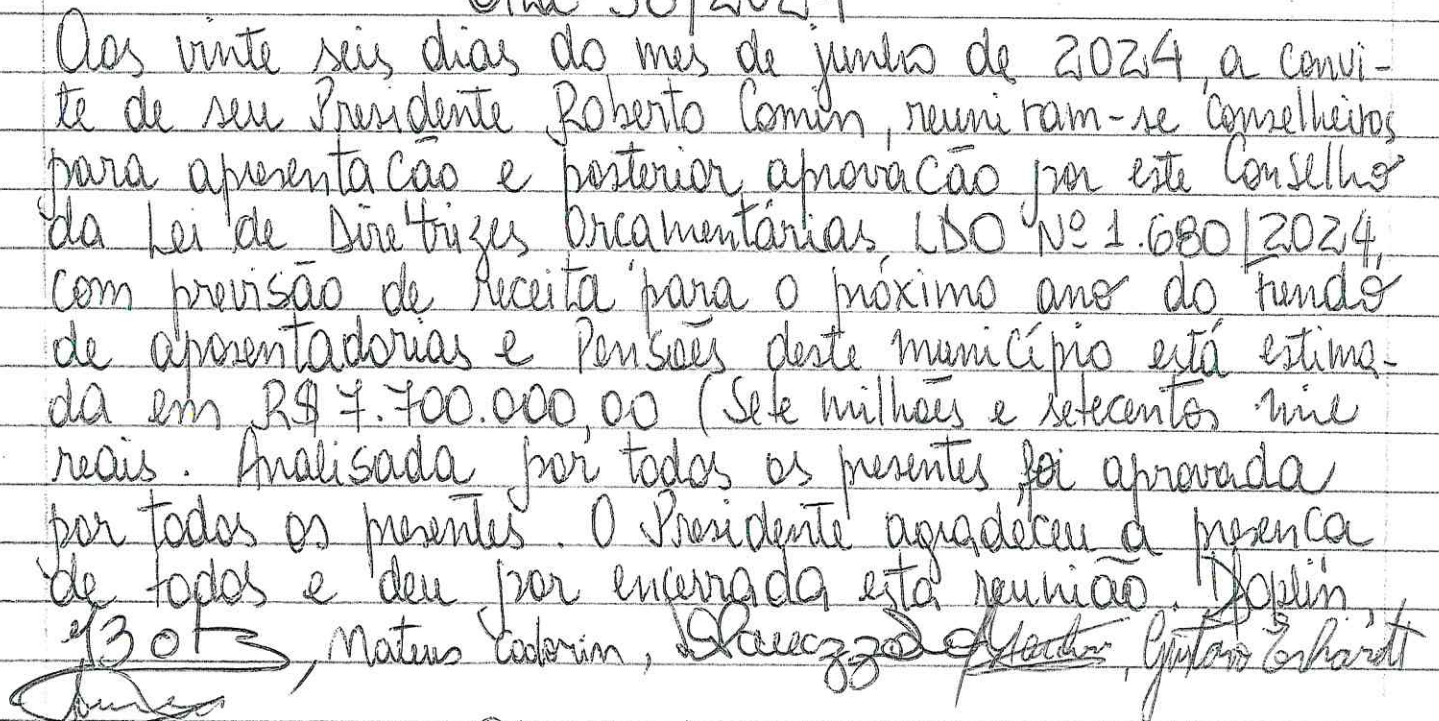 Aos vinte seis dias do mes de junho de 2024, a convi-
te de seu Presidente Roberto Comin, reuniram-se Conselheiros
para apresentacão e posterior aprovacão por este Conselho
da Lei de Diretrizes Orcamentárias LDO Nº 1.680/2024,
com previsão de Receita para o próximo ano do Fundo
de aposentadorias e Pensões deste município está estima-
da em R$ 7.700.000,00 (Sete milhões e setecentos mil
reais. Analisada por todos os presentes foi aprovada
por todos os presentes. O Presidente agradeceu a presenca
de todos e deu por encerrada esta reunião.
, Mateus Coderin, , Gustavo Erhardt